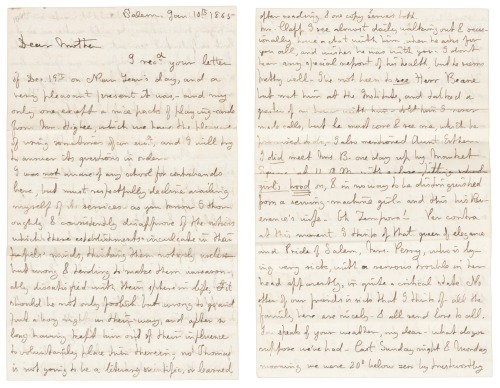 Salem Jan. 10th 1865
Dear Mother
I recd your letter
of Dec. 19th on New Year's day, and a
very pleasant present it was - and my
only one except a nice pack of playing-cards
from Mr. Higbee, which we have the pleasure
of using sometimes of an evg. and I will try
to answer its questions in order.
I was not aware of any school for contrabands
here, but must respectfully decline availing
myself of its services - as you know I thor-
oughly & consistently disapprove of the notions
which these establishments inculcate in their
pupils' minds, thinking them not only useless
but wrong & tending to make them unreason-
ably dissatisfied with their after-life. It
should be not only foolish but wrong to go and
put a boy right in their way, and after a
long having kept him out of their influence
to voluntarily place him therein. no Thomas
is not going to a literary scientific, or learned
after reading, & one copy Series
Mr. Clapp I see almost daily, walking out & occa-
sionally have a chat with him. he asks for
you all, and wishes he was with you. I don't
hear any special report of his health, but he seems
pretty well. I've not been to see Herr Beane
but met him at the Institute, and talked a
quarter of an hour
he must come & see me, which he
promised to do, I also mentioned Aunt Esther.
I did meet Mrs. B. one day up by Market
Square 11 A.M.
girl's hood on, & in no way to be distinguished
from a sewing-machine girl and this his Rev-
erence's wife. Oh Tempora! Per contra
at this moment I think of that queen of elegance
and Pride of Salem, Mrs. Perry, who is ly-
ing very sick, with a nervous trouble in her
head apparently, in quite a critical state. No
other of our friends is sick that I think of. all the
family here are nicely - & all send love to all.
You speak of your weather, my dear - what do you
suppose we've had - Last Sunday night & Monday
morning we were 20° below zero by trustworthy